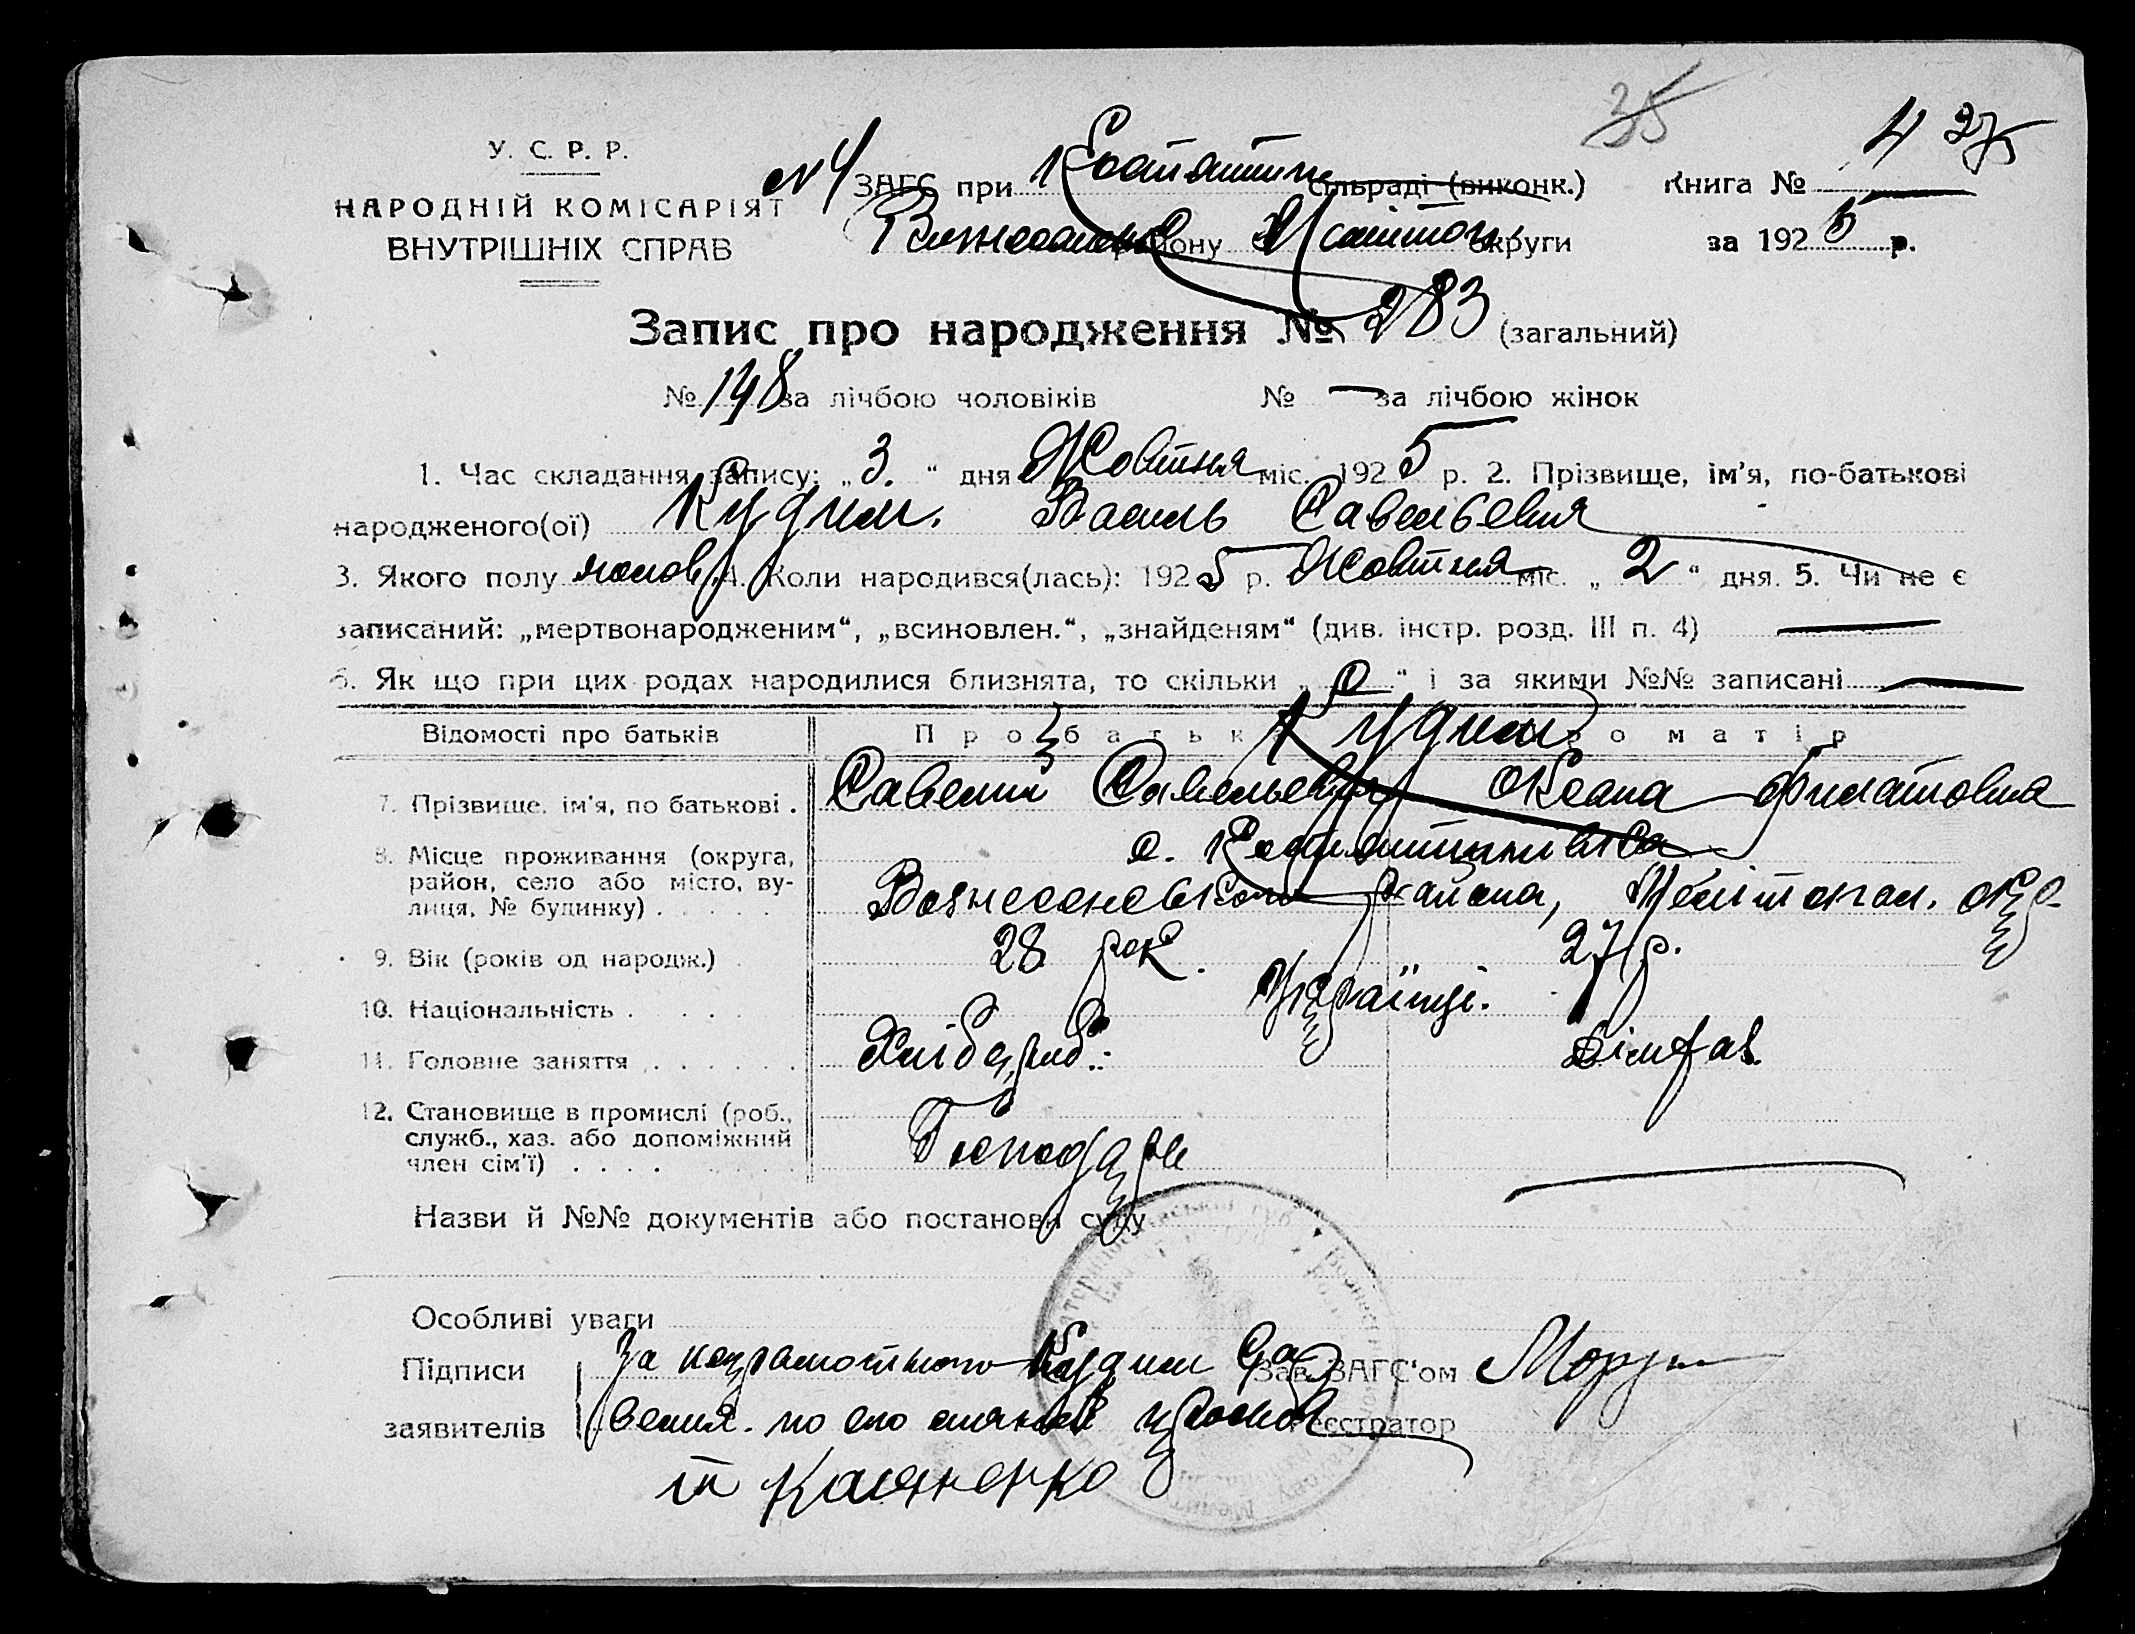 35
У. С. Р. Р.
НАРОДНІЙ КОМІСАРІЯТ
ВНУТРІШНІХ СПРАВ
№ 4 ЗАГС при сільраді (виконк.) Книга № 4
району округи за 1925 р.
Запис про народження № 283 (загальний)
№ 148 за лічбою чоловіків № — за лічбою жінок
1. Час складання запису: „3." дня Жовтня міс. 1925 р. 2. Прізвище, ім'я, по-батькові
народженого(ої) Кудим. Василь Савельевия
3. Якого полу 4. Коли народився(лась): 1925 р. Жовтня міс. „2" дня. 5. Чи не є
записаний: „мертвонародженим", „всиновлен.", „знайденям" (див. інстр. розд. III п. 4) —
6. Як що при цих родах народилися близнята, то скільки „0" і за якими №№ записані —
Відомості про батьків Про батька Про матір
Кудим
7. Прізвище, ім'я, по батькові . Савелий Савельевич Оксана Филатовна
8. Місце проживання (округа,
район, село або місто, ву-
лиця, № будинку) . . . . .
с.
Вознесеновського района, Мелітопол. окр.
9. Вік (років од народж.) 28 рок. 27 р.
10. Національність . . . . Українці.
11. Головне заняття . . . . . . Хлібороб.
12. Становище в промислі (роб.,
служб., хаз. або допоміжний
член сім'ї) . . . .
Господарь —
Назви й №№ документів або постанови суду
Особливі уваги
Підписи За неграмотного Кудим Са Зав. ЗАГС'ом
заявителів велия. по его личной просьбе Реєстратор